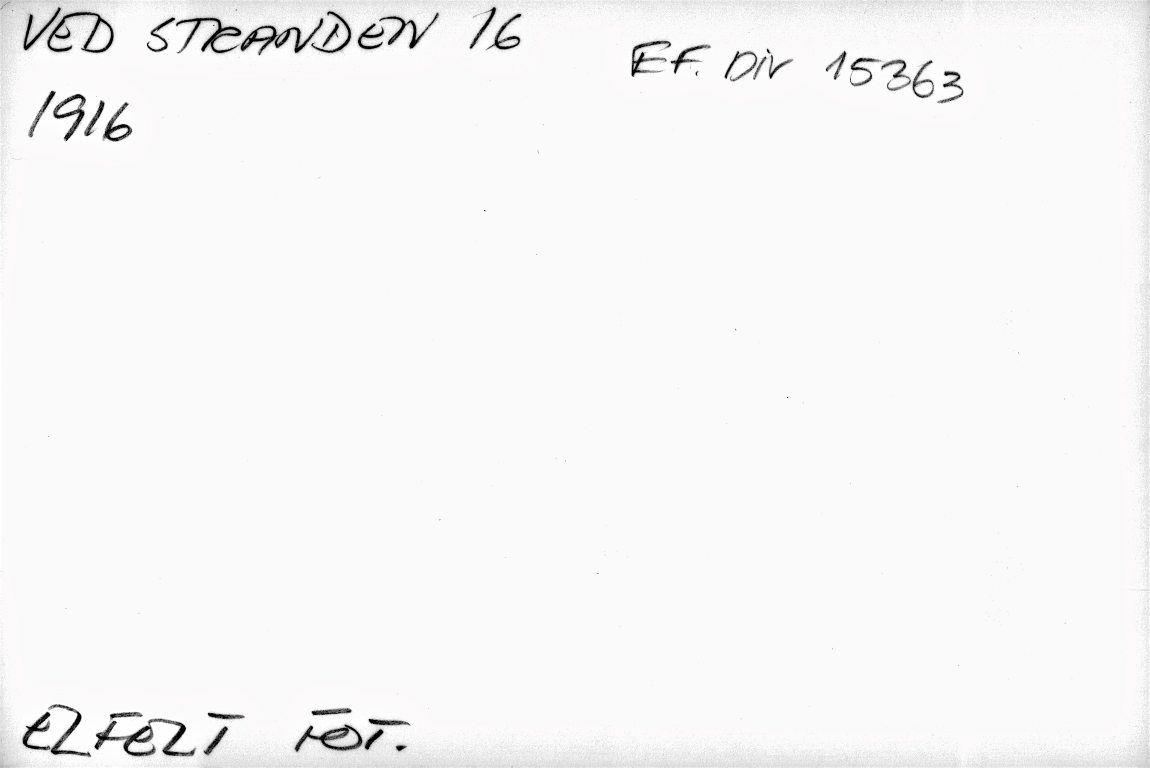 VED STRANDEN 16
EF. DIV 15363
1916
ELFELT FOT.